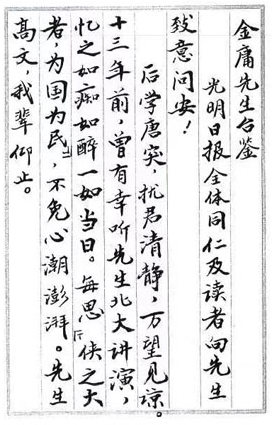 金庸先生台鉴
光明日报全体同仁及读者向先生
致意问安！
后学唐突，扰君清静，万望见谅。
十三年前，曾有幸听先生北大讲演，
忆之如痴如醉一如当日。每思“侠之大
者，为国为民”，不免心潮澎湃。先生
高文，我辈仰止。